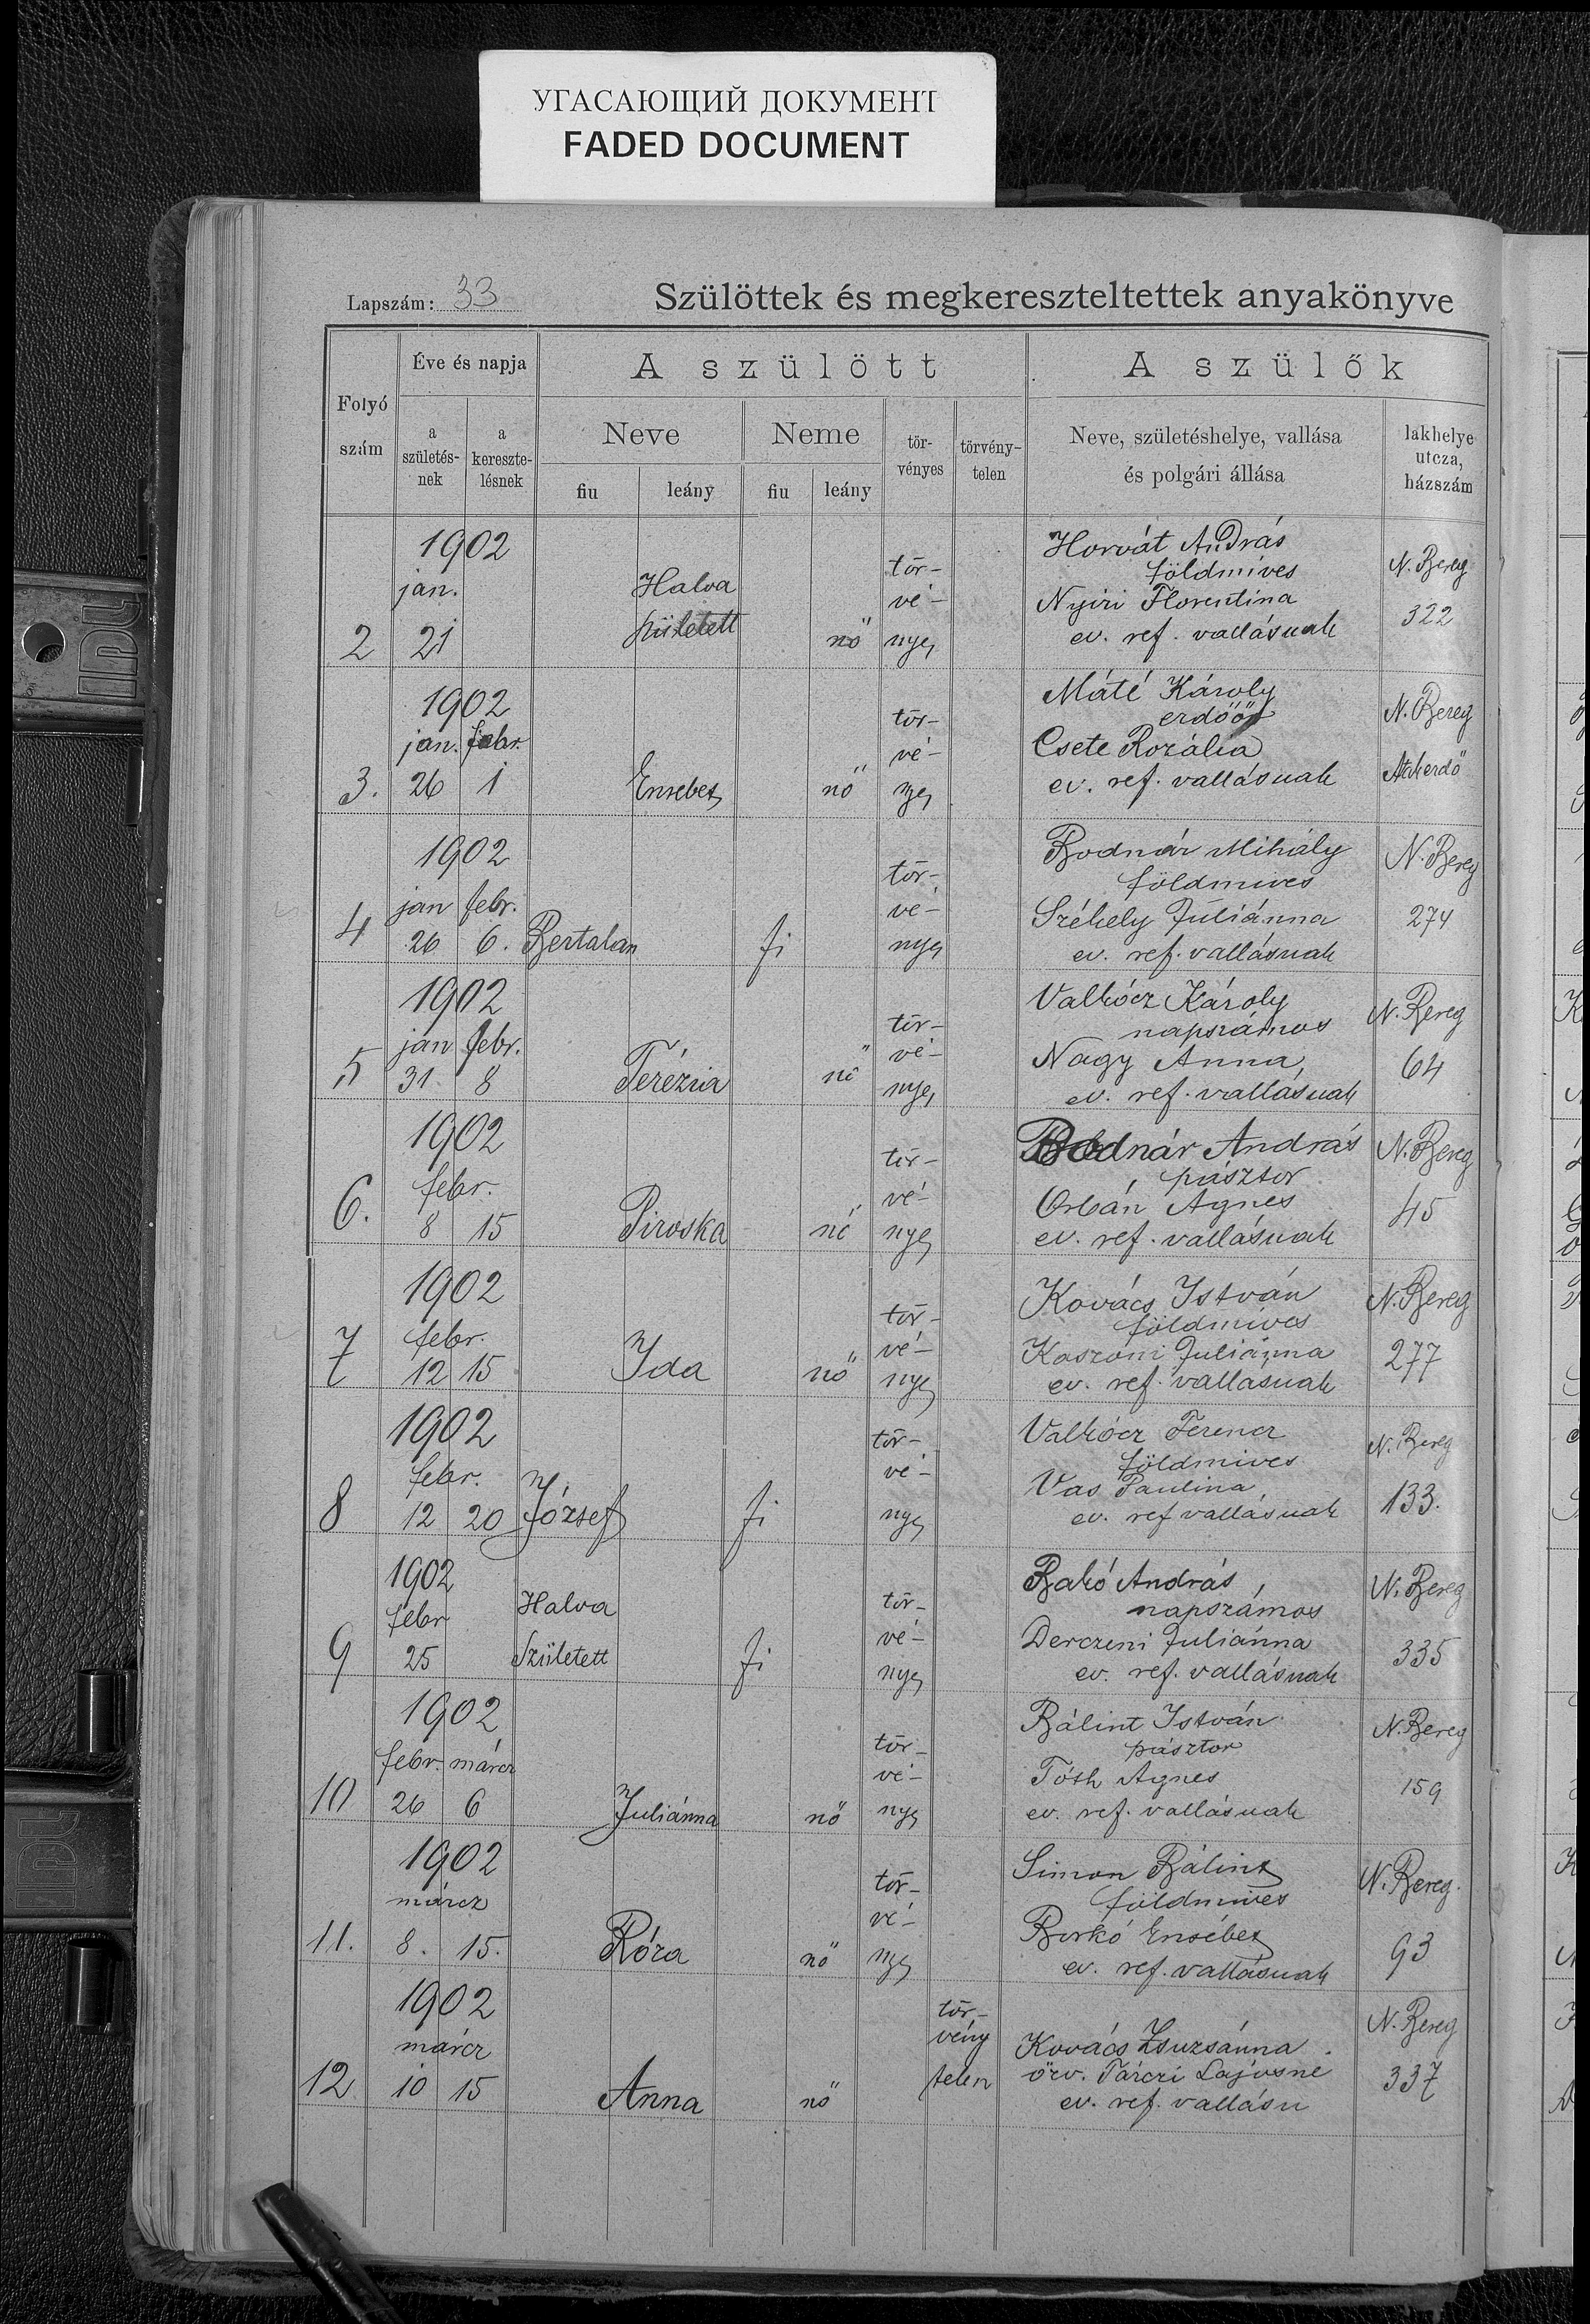 УГАСАЮЩИЙ ДОКУМЕНТ
FADED DOCUMENT
Lapszám: 33
Szülöttek és megkereszteltettek anyakönyve
Folyó szám
Éve és napja
a születés-nek
a kereszte-lésnek
A szülött
Neve
fiu
leány
Neme
fiu
leány
tör-vényes
törvény-telen
A szülők
Neve, születéshelye, vallása
és polgári állása
lakhelye
utcza,
házszám
2
1902
jan.
21
Halva
született
nő
tör-
vé-
nyes
Horvát András
földmives
Nyiri Florentina
ev. ref. vallásuak
N. Bereg
322
3.
1902
jan. febr.
26 1
Ersebet
nő
tör-
vé-
nyes
Máté Károly
erdőőr
Csete Rozália
ev. ref. vallásuak
N. Bereg
4
1902
jan febr.
26 6.
Bertalan
fi
tör-
vé-
nyes
Bodnár Mihály
földmives
Székely Juliánna
ev. ref. vallásuak
N. Bereg
274
5
1902
jan febr.
31. 8
Terézia
nő
tör-
vé-
nyes
Valkócz Károly
napszámos
Nagy Anna,
ev. ref. vallásuak
N. Bereg
64
6.
1902
febr.
8 15
Piroska
nő
tör-
vé-
nyes
Bodnár András
pásztor
Orbán Agnes
ev. ref. vallásuak
N. Bereg
45
7
1902
febr.
12 15
Ida
nő
tör-
vé-
nyes
Kovács István
földmives
Kaszoni Juliánna
ev. ref. vallásuak
N. Bereg
277
8
1902
febr.
12 20
József
fi
tör-
vé-
nyes
Valkócz Ferencz
földmives
Vas Paulina
ev. ref vallásuak
N. Bereg
133.
9
1902
febr
25
Halva
Született
fi
tör-
vé-
nyes
Bakó András
napszámos
Derczeni Juliánna
ev. ref. vallásuak
N. Bereg
335
10
1902
febr. márcz
26 6
Juliánna
nő
tör-
vé-
nyes
Bálint István
pásztor
Tóth Agnes
ev. ref. vallásuak
N. Bereg
159
11.
1902
márcz
8. 15.
Róza
nő
tör-
vé-
nyes
Simon Bálint
földmives
Borkó Ersébet
ev. ref. vallásuak
N. Bereg.
93
12
1902
márcz
10 15
Anna
nő
tör-
vény
telen
Kovács Zsuzsánna
özv. Tárczi Lajosne
ev. ref. vallásu
N. Bereg
337